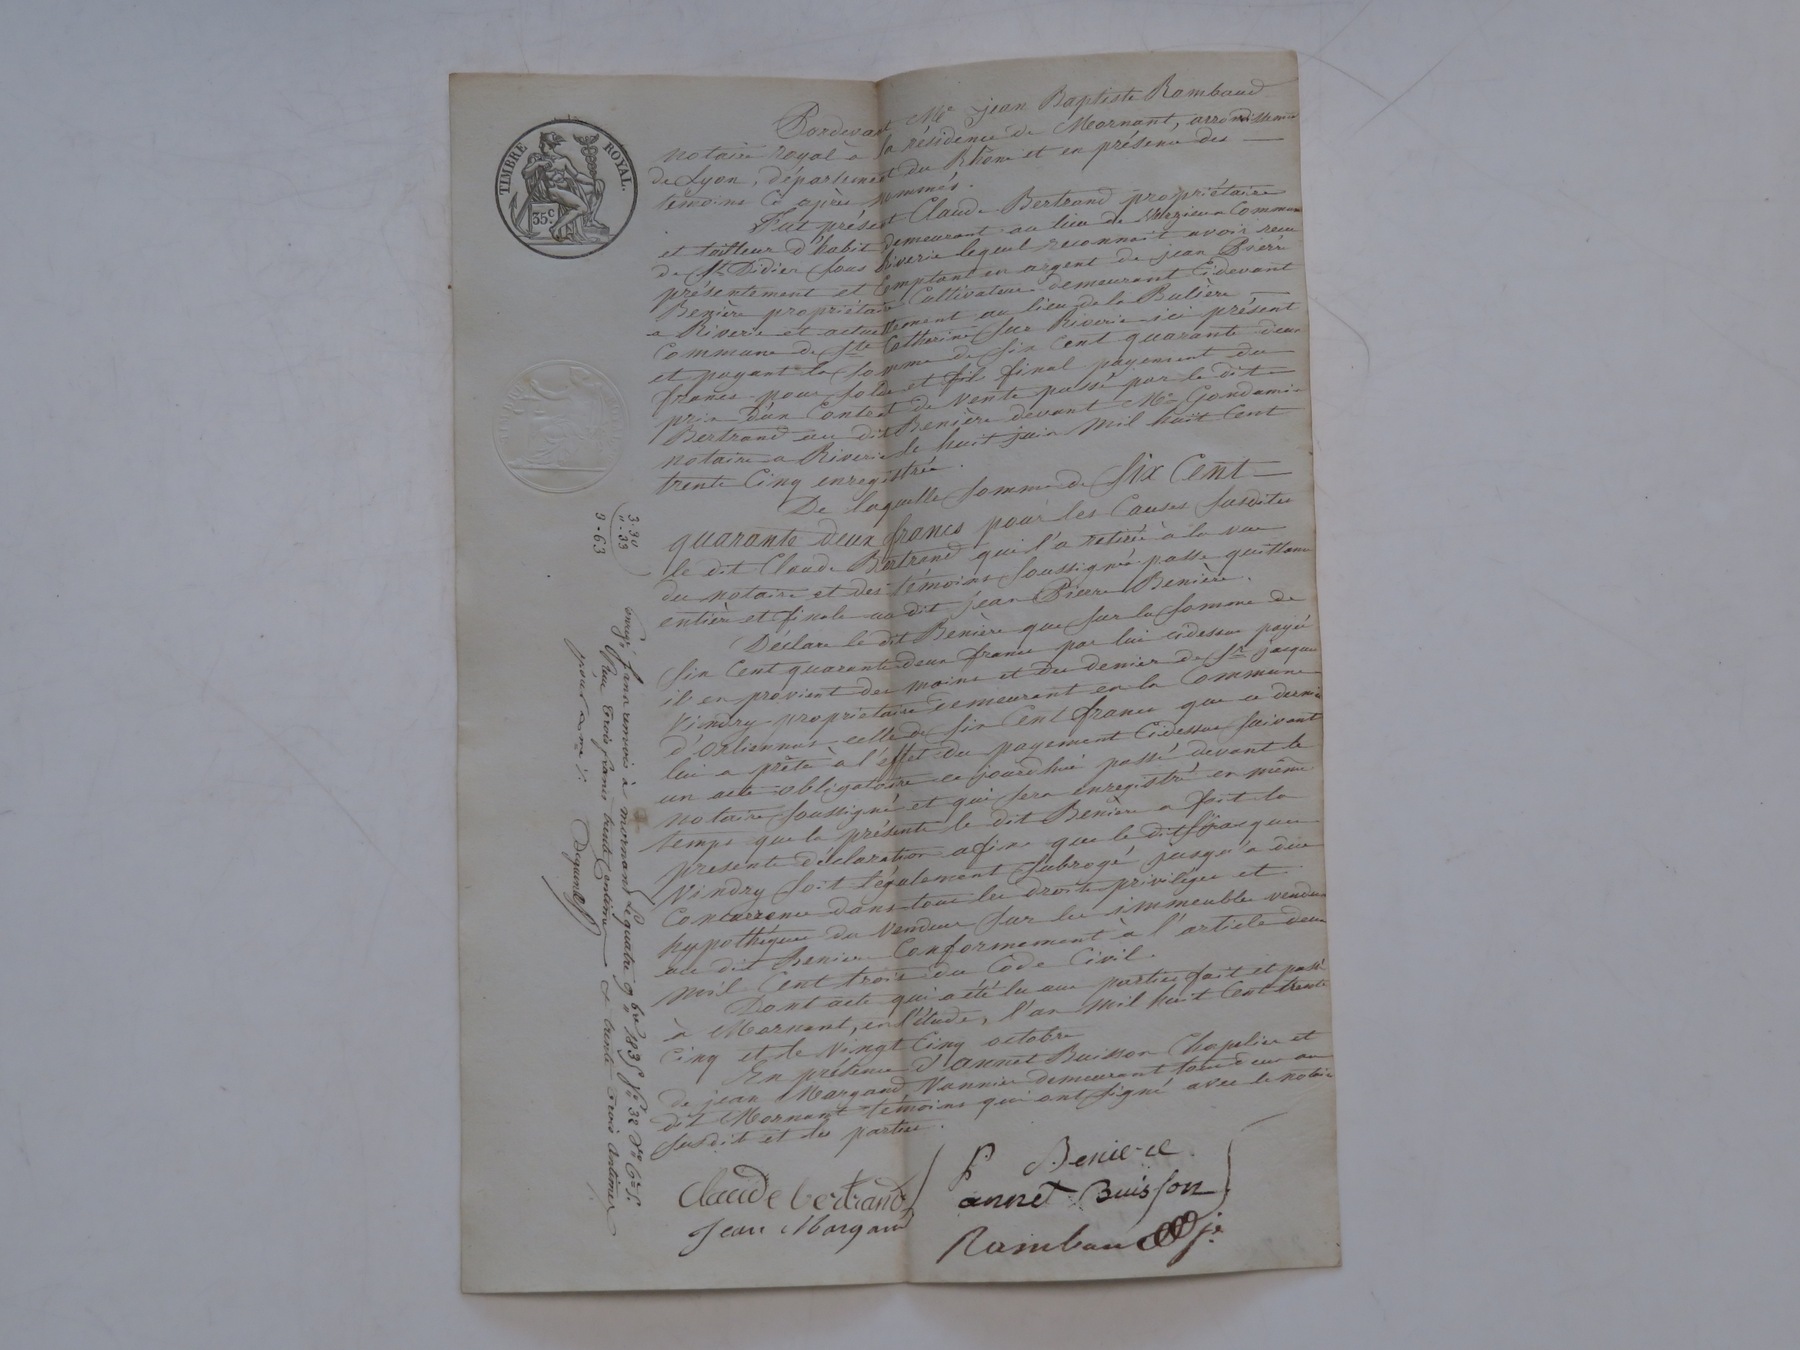 TIMBRE ROYAL.
35c
Pardevant Me jean Baptiste Rambaud
notaire royal à la résidence de Mornant, arrondisseme
de Lyon, département du Rhône et en présence des
temoins ci après nommés.
Fut présent Claude Bertrand propriétaire
et tailleur d'habit demeurant au lieu de Commune
de St Didier sous Riverie lequel reconnait avoir recu
présentement et Comptant en argent de jean Pierre
Benière propriétaire Cultivateur demeurant cidevant
a Riverie et actuellement au lieu de la Bulière
Commune de Ste Catherine sur Riverie ici présent
et payant la somme de six Cent quarante deux
francs pour solde et final payement du
prix d'un Contrat de vente passé par le dit
Bertrand au dit Benière devant Me Gondamin
notaire a Riverie le huit juin mil huit Cent
trente Cinq enregistrée.
De laquelle somme de Six Cent
quarante deux francs pour les Causes susdites
le dit Claude Bertrand qui l'a retirée à la vue
du notaire et des témoins soussignés passe quittance
entière et finale au dit jean Pierre Benière.
Déclare le dit Benière que sur la somme de
six Cent quarante deux francs par lui cidessus payé
il en provient des mains et des denier de Sr jacques
Vindry propriétaire demeurant en la Commune
d'Orliennas celle de six Cent francs que ce dernier
lui a prêté à l'effet du payement Cidessus suivant
un acte obligatoire ce jourdhui passé devant le
notaire soussigné et qui sera enregistré en même
temps que la présente le dit Benière a fait la
presente déclaration afin que le dit Sr jacques
Vindry soit légalement subrogé jusqu'a due
Concurrence dans tous les droits privilèges et
hypothèques du vendeur sur les immeubles vendus
au dit Benière Conformement à l'article deux
mil Cent trois du Code Civil.
Dont acte qui a été lu aux parties fait et passé
à Mornant, en l'étude, l'an mil huit Cent trente
Cinq et le Vingt Cinq octobre
En présence d'annet Buisson Chapelier et
de jean Margand Vannier demeurant tous deux au
dit Mornant témoins qui ont signé avec le notaire
susdit et les parties.
Claude bertrand
Jean Margand
P. Beniere
annet Buisson
Rambaud
3-30
"-33
3-63
Enrgé sans renvoi à mornand le quatre 9bre 1835 fo 32
Reçu trois francs trente centimes et trente trois centimes
pour